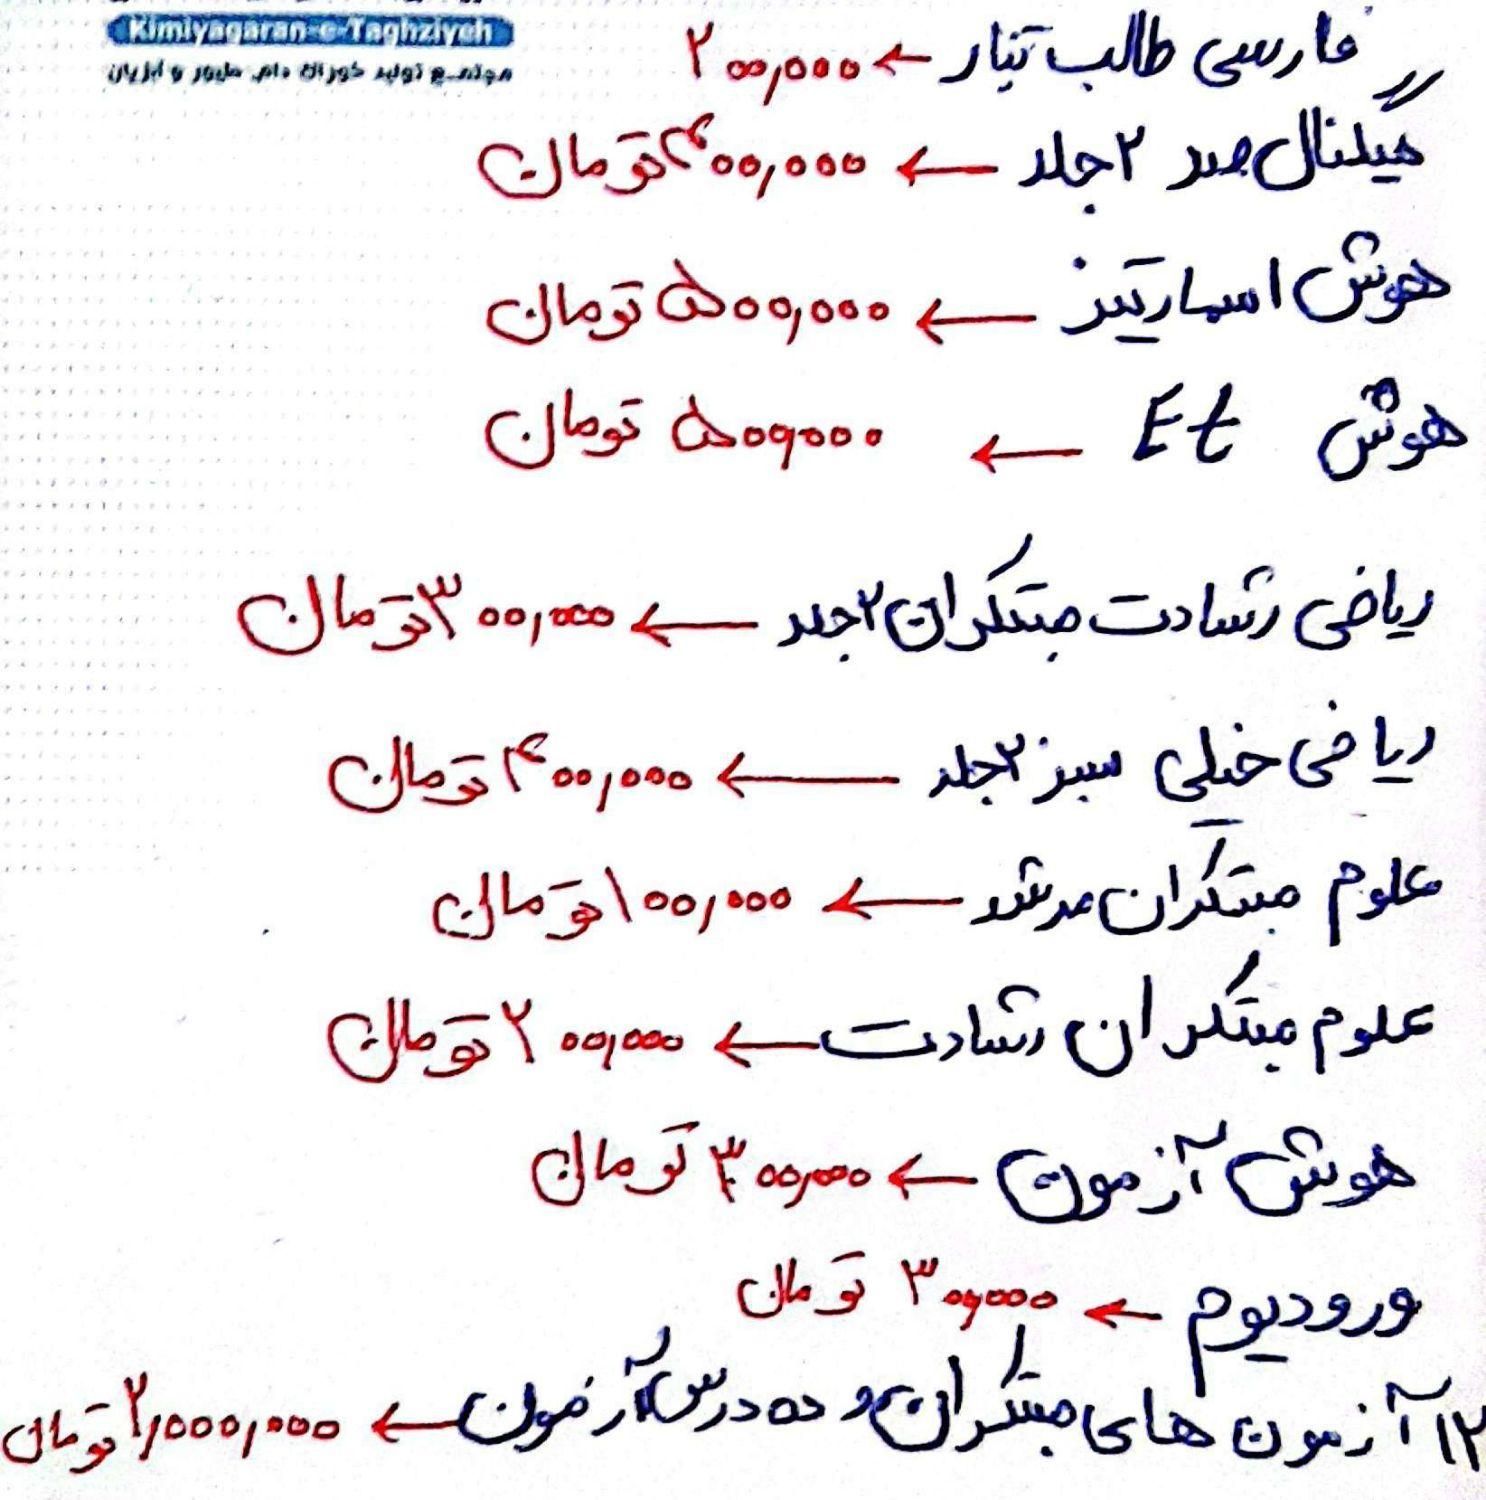 Kimiyagaran-e-Taghziyeh
مجتمع تولید خوراک دام، طیور و آبزیان
فارسی طالب تبار ← ۲۰۰,۰۰۰
〃
هوش اسمارتیز ← ۵۰۰,۰۰۰ تومان
هوش Et ← ۵۰۰,۰۰۰ تومان
ریاضی رشادت مبتکران ۲ جلد ← ۳۰۰,۰۰۰ تومان
ریاضی خیلی سبز ۲ جلد ← ۴۰۰,۰۰۰ تومان
علوم مبتکران مرشد ← ۱۰۰,۰۰۰ تومان
علوم مبتکران رشادت ← ۲۰۰,۰۰۰ تومان
هوش آزمون ← ۳۰۰,۰۰۰ تومان
ورودیوم ← ۳۰۰,۰۰۰ تومان
۱۲ آزمون های مبتکران و ده درس آزمون ← ۲,۰۰۰,۰۰۰ تومان